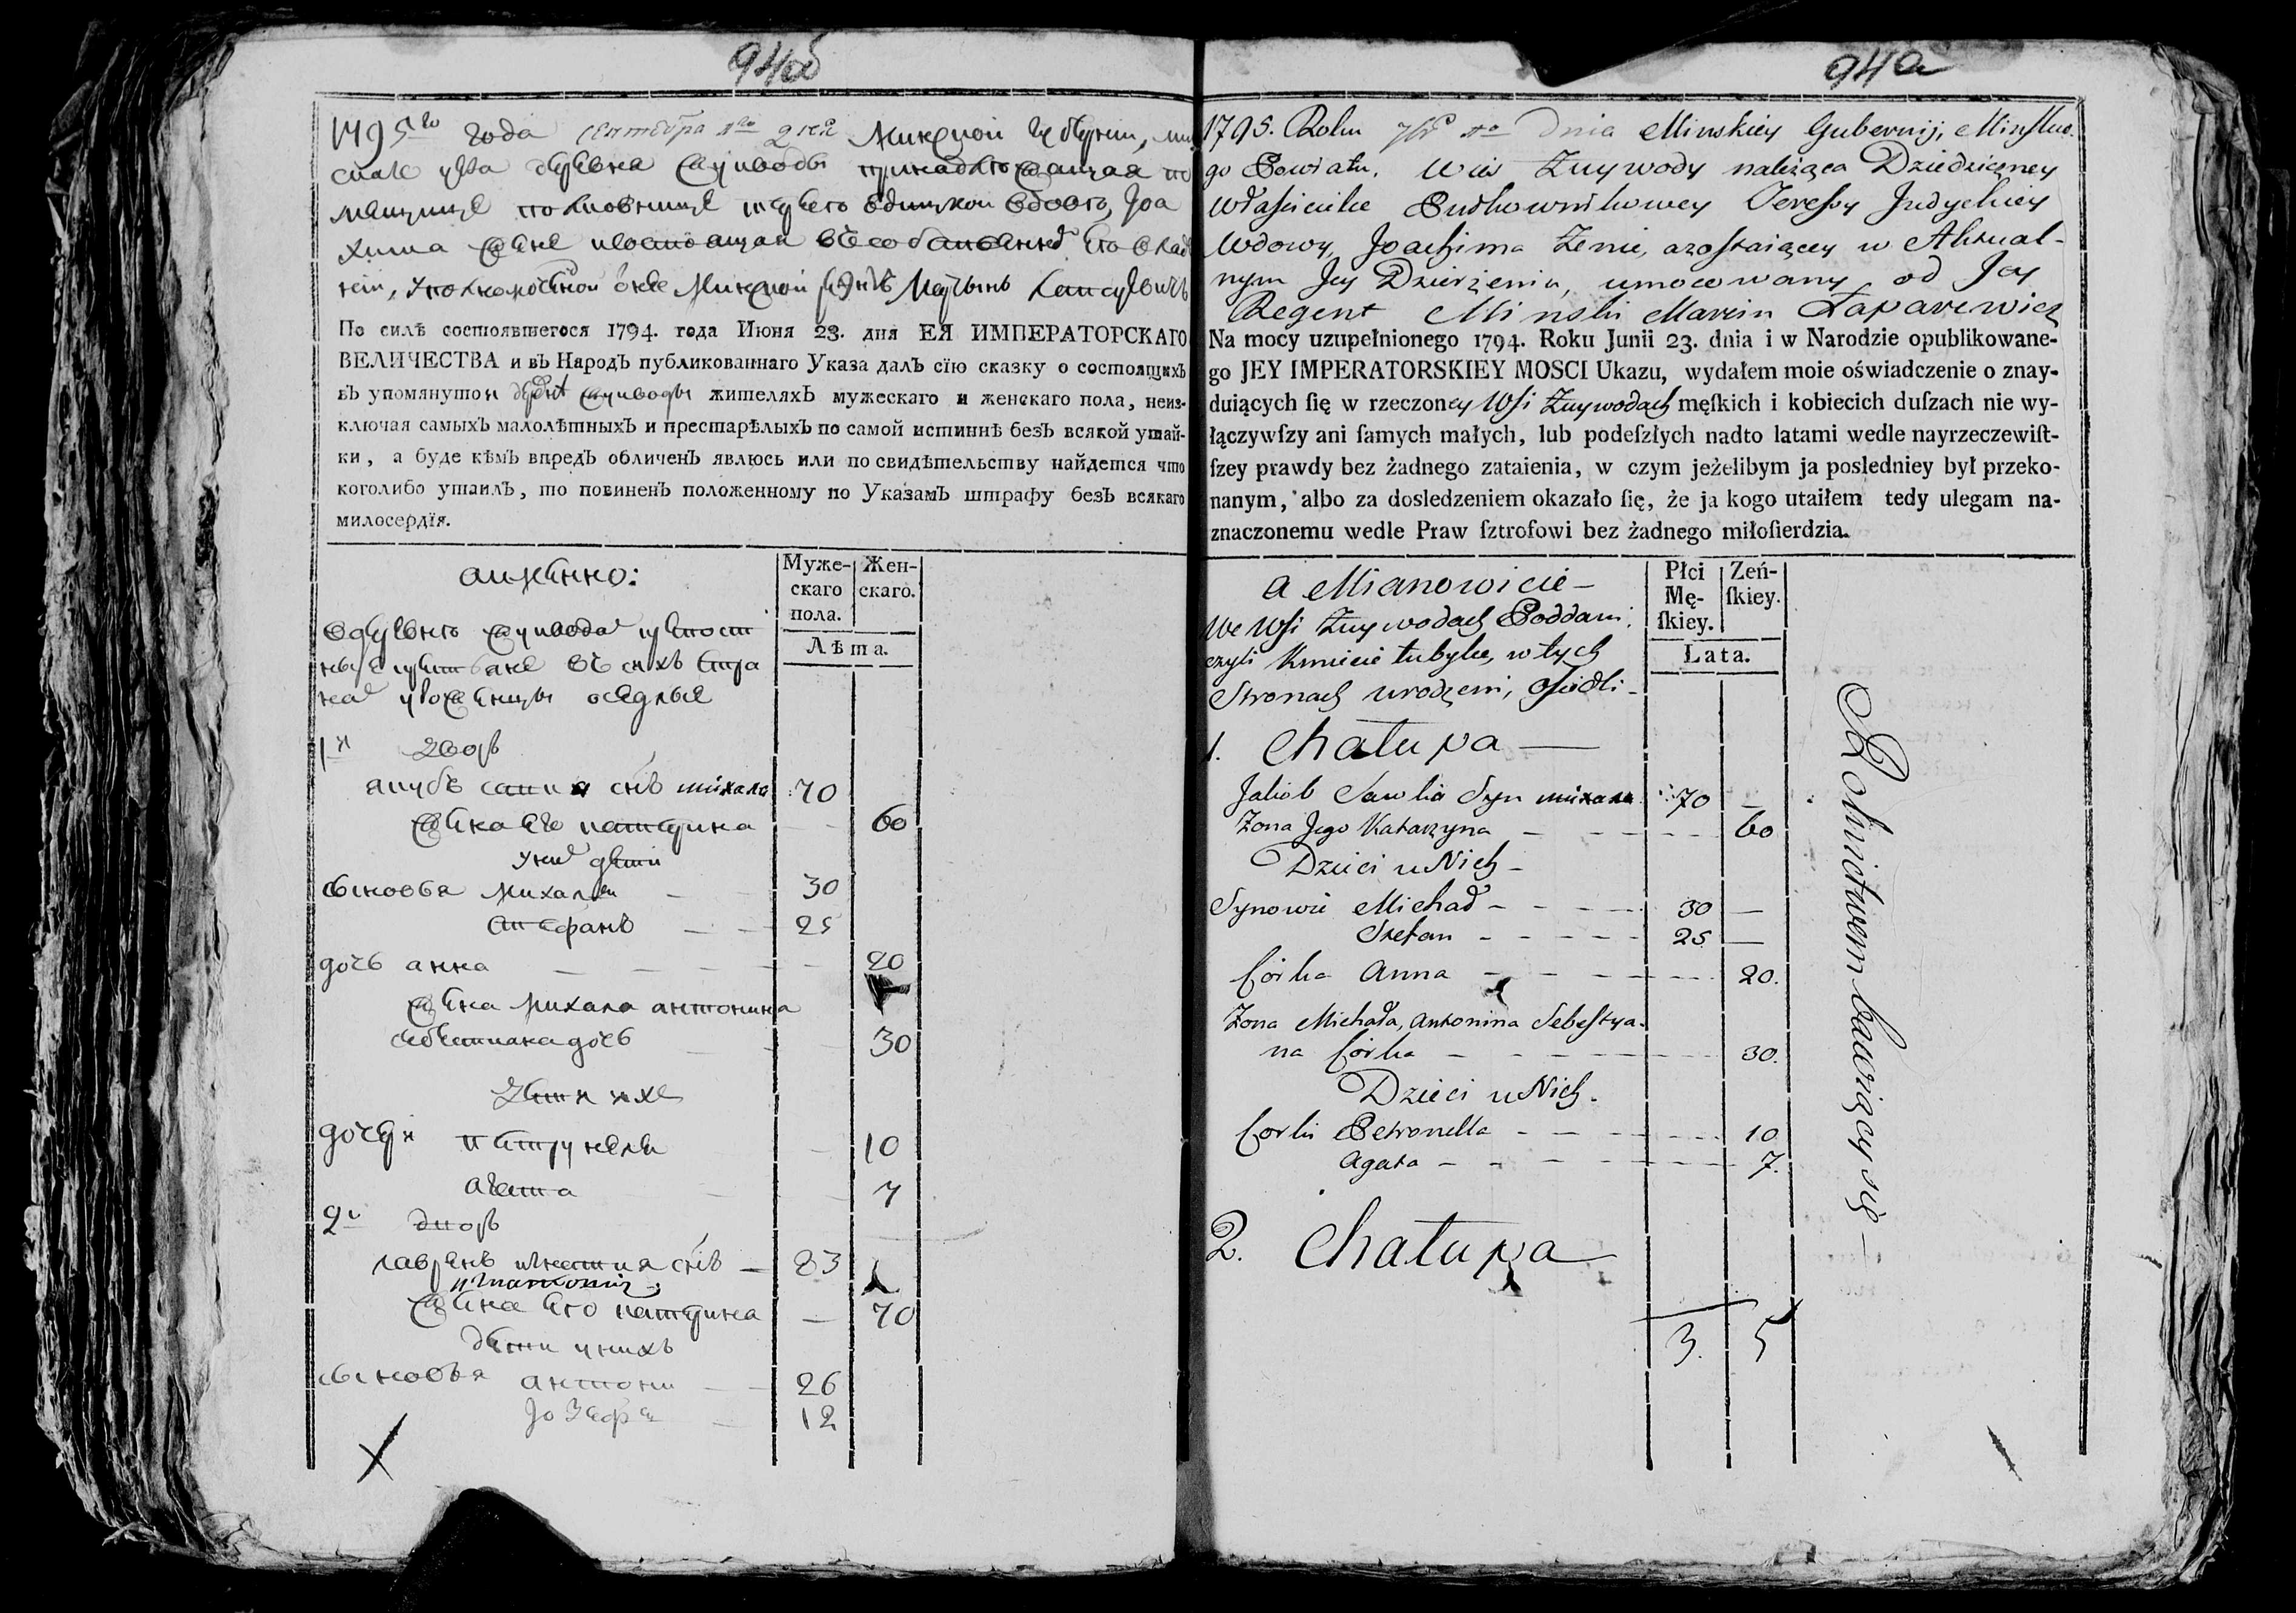 94об
1795го года сентября дня Минской губернии, мин
скаго уезда деревня Жуиводы принадлежащая по
мещице полковнице
хима жене
Мартынъ
По силѣ состоявшегося 1794. года Июня 23. дня ЕЯ ИМПЕРАТОРСКАГО
ВЕЛИЧЕСТВА и въ Народѣ публикованнаго Указа далъ сїю сказку о состоящихъ
въ упомянутои дервнѣ Жуиводы жителяхъ мужескаго и женскаго пола, неиз-
ключая самыхъ малолѣтныхъ и престарѣлыхъ по самой истиннѣ безъ всякой утай-
ки, а буде кѣмъ впредь обличенъ явлюсь или по свидѣтельству найдется что
коголибо утаилъ, то повиненъ положенному по Указамъ штрафу безъ всякаго
милосердїя.
аименно:
Муже-
скаго
пола.
Жен-
скаго.
Лѣта.
Вдеревне Жуиводах
крестьяне въ сихъ стра
нах урожденцы оседлые
1й Дворъ
якубъ савки снъ михала 70
жена его катерина — 60
у них дети
сыновья михали — 30
стефанъ — 25
дочь анна — 20
жена михала антонина
себестиана дочь 30
Дети их
дочери петрунеля 10
агата 7
2й дворъ
лавренъ снъ — 83
жена его катерина — 70
дети у нихъ
сыновья антони — 26
Jозефъ — 12
94а
1795. Roku 7bra dnia Minskiey Gubernij, Minskie
go Powiatu. Wieś Żuywody należąca Dziedziczney
Właścicielce Pułkownikowey Teressy Judyckiey
Wdowy, Joachima Żenie, zostaiącey w Aktual-
nym Jey Dzierżeniu, umocowany od Jey
Regent Minski Marcin Łaparewicz
Na mocy uzupełnionego 1794. Roku Junii 23. dnia i w Narodzie opublikowane-
go JEY IMPERATORSKIEY MOSCI Ukazu, wydałem moie oświadczenie o znay-
duiących ſię w rzeczoney Wsi Żuywodach męſkich i kobiecich duſzach nie wy-
łączywſzy ani ſamych małych, lub podeſzłych nadto latami wedle nayrzeczewiſt-
ſzey prawdy bez żadnego zataienia, w czym jeżelibym ja posledniey był przeko-
nanym, albo za dosledzeniem okazało ſię, że ja kogo utaiłem tedy ulegam na-
znaczonemu wedle Praw ſztrofowi bez żadnego miłoſierdzia.
a Mianowicie —
Płci
Mę-
ſkiey.
Zeń-
ſkiey.
Lata.
We Wsi Żuywodach Poddani,
czyli Kmiecie tubylce, w tych
Stronach urodzeni, Osiedli —
1. Chałupa —
Jakób Sawka Syn михала 70 —
Żona Jego Katarzyna — 60
Dzieci u Nich —
Synowie Michał — 30 —
Stefan — 25 —
Córka Anna — 20.
Żona Michała, Antonina Sebestya-
na Córka — 30.
Dzieci u Nich.
Corki Petronella — 10
Agata — 7.
2. Chałupa
3. 5
Rolnictwem bawiący się —